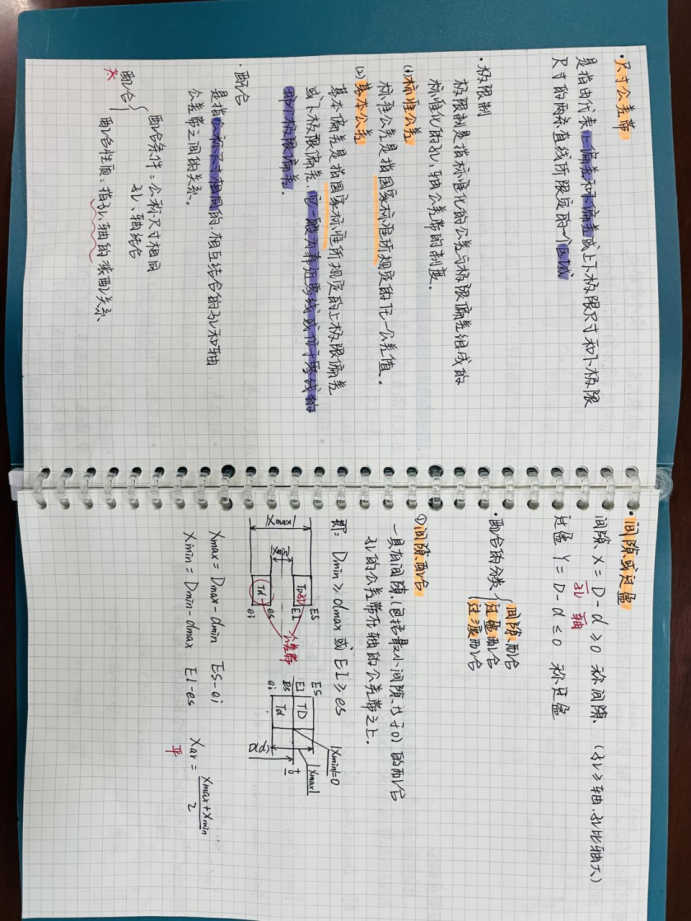 ·尺寸公差带
是指由代表上偏差和下偏差或上下极限尺寸和下极限
尺寸的两条直线所限定的一个区域
·极限制
极限制是指标准化的公差与极限偏差组成的
标准化的孔、轴公差带的制度。
(1)标准公差
标准公差是指国家标准所规定的任一公差值。
(2)基本公差
基本偏差是指国家标准所规定的上极限偏差
或下极限偏差,它一般为靠近零线或位于零线的
那个极限偏差。
·配合
是指公称尺寸相同的,相互结合的孔和轴
公差带之间的关系。
配合 { 配合条件:公称尺寸相同
孔、轴结合
配合性质:指孔、轴的装配关系、
·间隙或过盈
间隙、X = D - d ≥ 0 称间隙、(孔≥轴,孔比轴大)
孔 轴
过盈 Y = D - d ≤ 0 称过盈
·配合的分类 { 间隙配合
过盈配合
过渡配合
①间隙配合
一具有间隙(包括最小间隙为0)的配合
孔的公差带在轴的公差带之上.
即: Dmin ≥ dmax 或 EI ≥ es
|Xmax| TD Td ES EI es ei 公差带
ES EI es ei TD Td |Xmin|=0 |Xmax| D(d)
Xmax = Dmax - dmin ES-ei
Xmin = Dmin - dmax EI-es Xav = Xmax+Xmin / 2
平